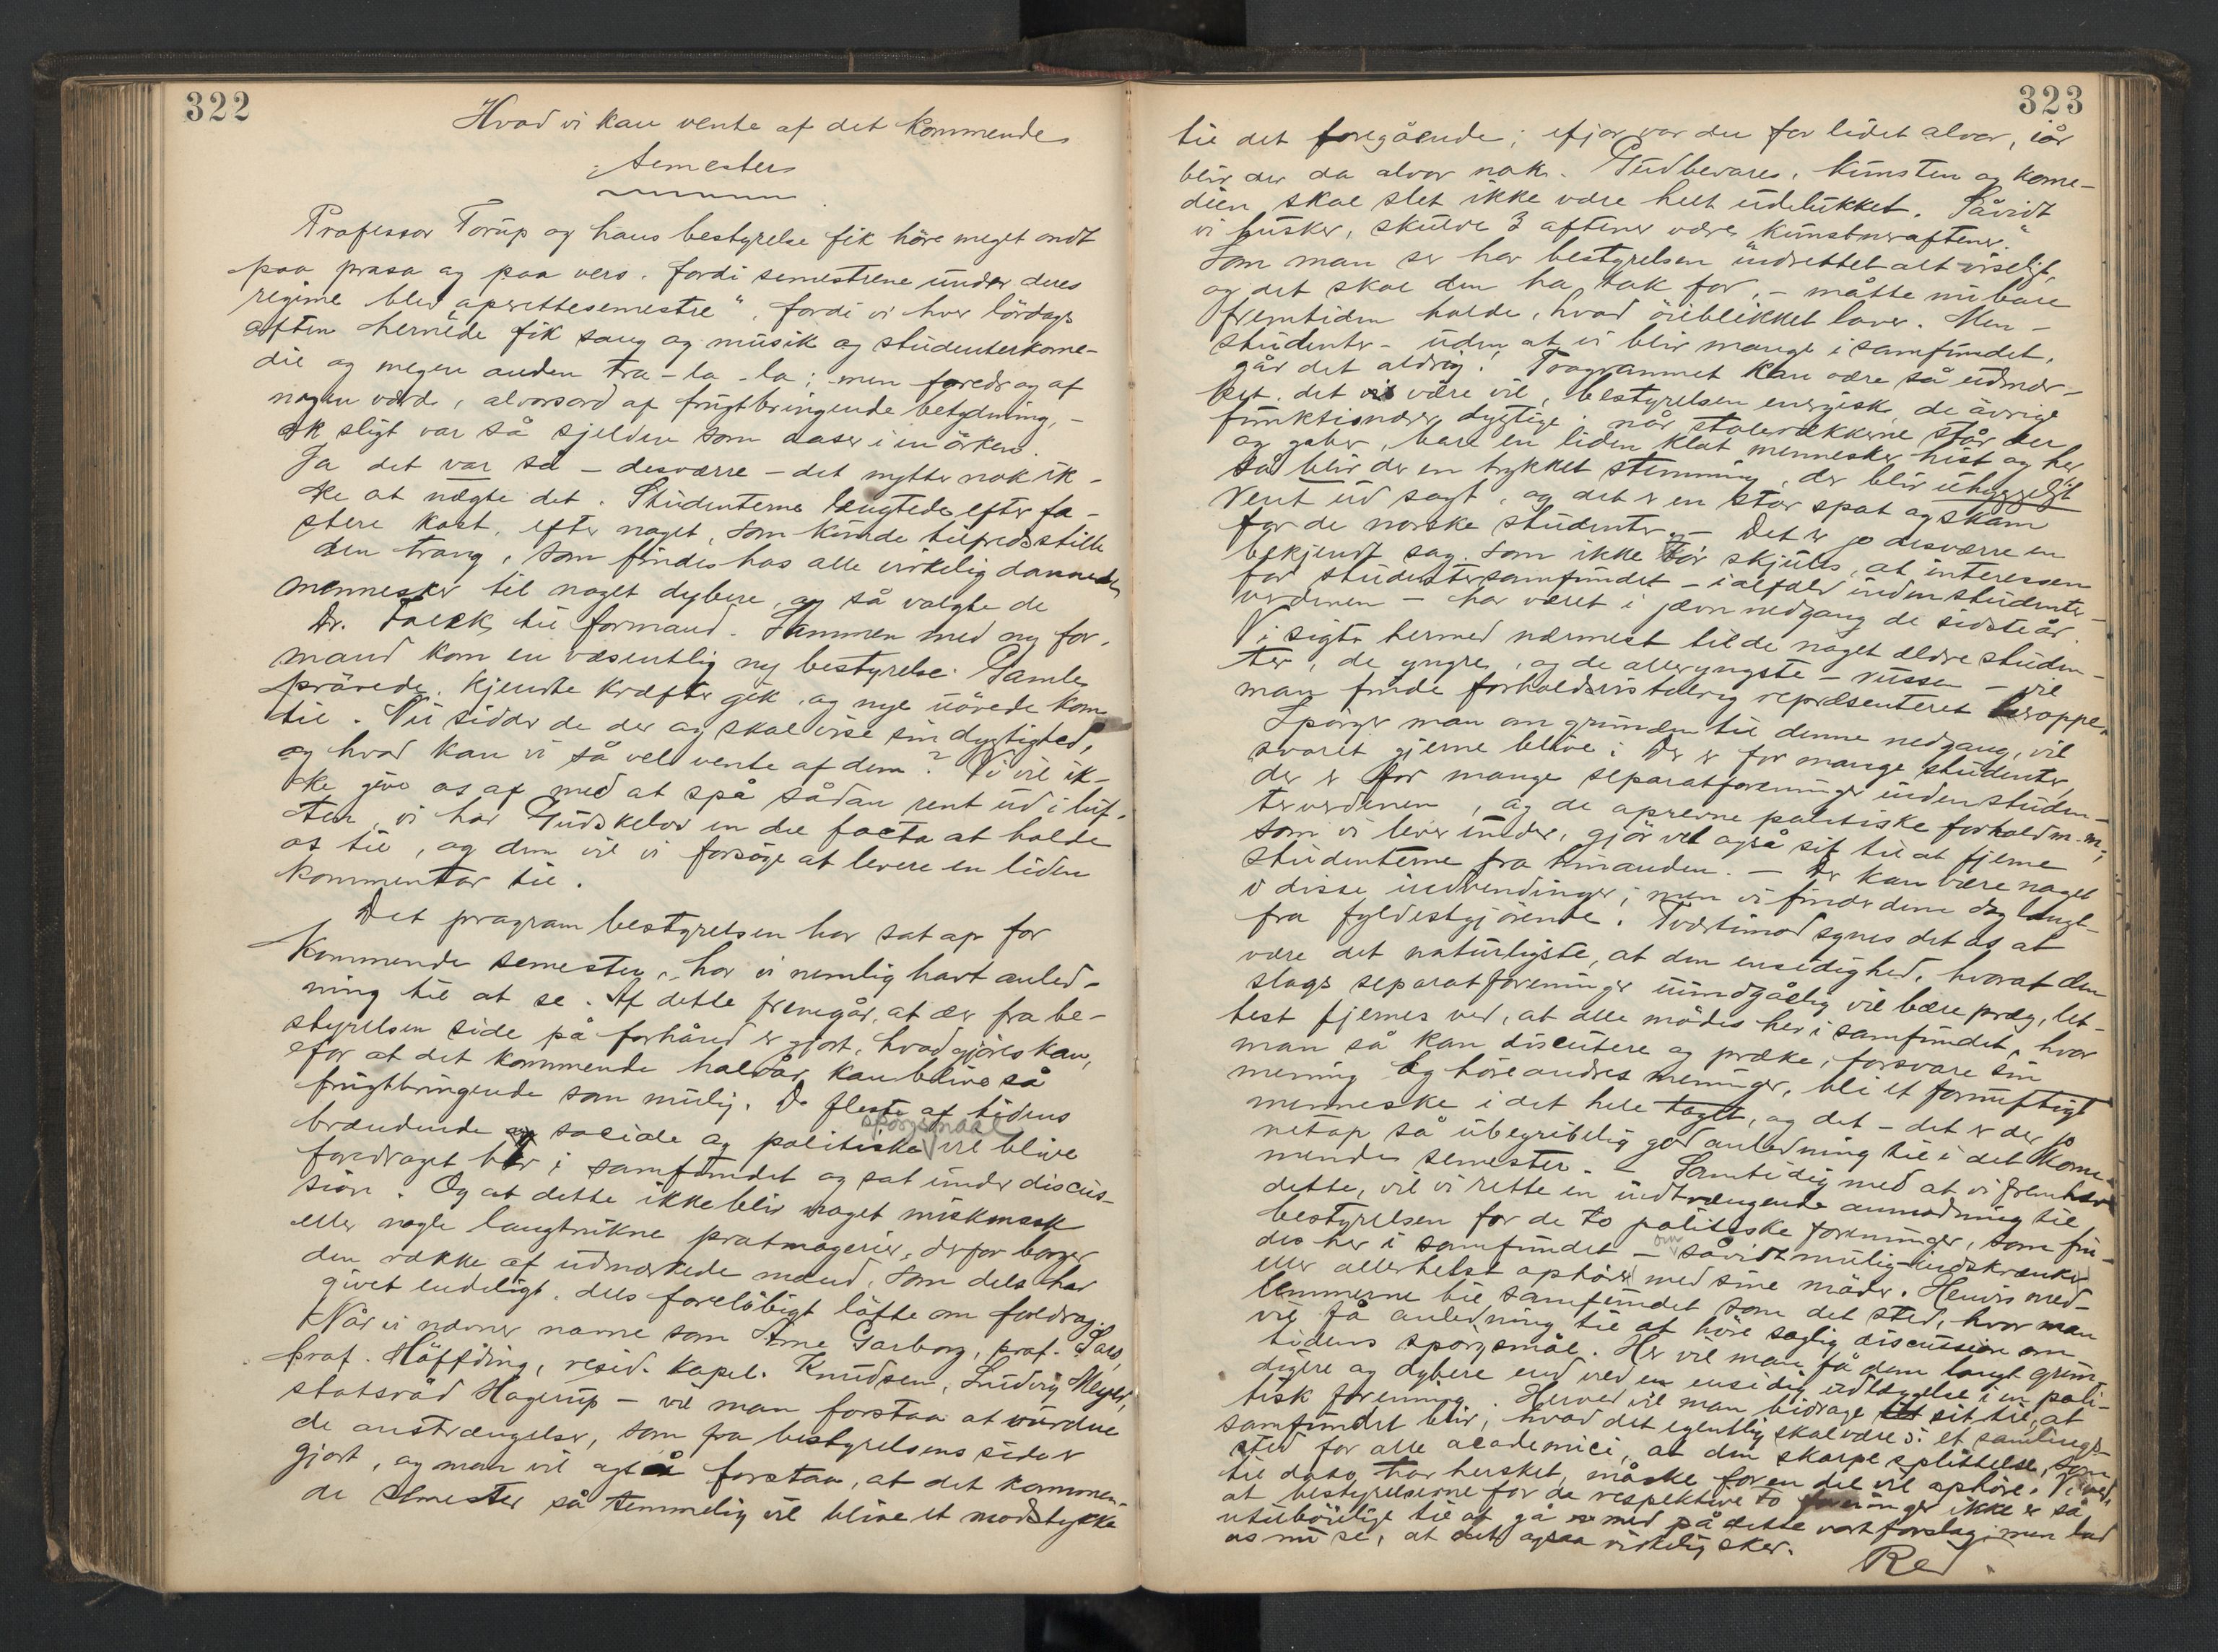 322
Hvad vi kan vente af det kommende
semester
Professor Torup og hans bestyrelse fik høre meget ondt
paa prosa og paa vers, fordi semestrene under deres
regime blev „operettesemestre“, fordi vi hver lördags
aften hernede fik sang og musik og studenterkome-
die og megen anden tra-la-la; men foredrag af
nogen værd, alvorsord af frugtbringende betydning, –
ak sligt var så sjeldne som oaser i en örken.
Ja det var så – desværre – det nytter nok ik-
ke at nægte det. Studenterne længtede efter fa-
stere kost, efter noget, som kunde tilfredsstille
den trang, som findes hos alle virkelig dannede
mennesker til noget dybere, og så valgte de
Dr. Faleck til formand. Sammen med ny for-
mand kom en væsentlig ny bestyrelse. Gamle
prövede, kjendte kræfter gik, og nye uövede kom
til. Nu sidder de der og skal vise sin dygtighed,
og hvad kan vi så vel vente af dem? Vi vil ik-
ke give os af med at spå sådan rent ud i luf-
ten, vi har Gudskelov en del facta at holde
os til, og dem vil vi forsöge at levere en liden
kommentar til.
Det program bestyrelsen har sat op for
kommende semester, har vi nemlig havt anled-
ning til at se. Af dette fremgår, at der fra be-
styrelsen side på forhånd er gjort, hvad gjöres kan,
for at det kommende halvår kan blive så
frugtbringende som mulig. De fleste af tidens
brændende sociale og politiske spörgsmaal vil blive
foredraget her i samfundet og sat under discus-
sion. Og at dette ikke blir noget miskmask
eller nogle langtrukne pratmagerier, derfor borger
den række af udmærkede mænd, som dels har
givet endeligt, dels forelöbigt löfte om foredrag.
Når vi nævner navne som Arne Garborg, prof. Sars,
prof. Höffding, resid. kapel. Knudsen, Ludvig Meyer,
statsråd Hagerup – vil man forstaa at vurdere
de anstrængelser, som fra bestyrelsens side er
gjort, og man vil også forstaa, at det kommen-
de semester så temmelig vil blive et modstykke
323
til det foregående; ifjor var der for lidet alvor, iår
blir der da alvor nok. Gudbevares, kunsten og kome-
dien skal slet ikke være helt udelukket. Såvidt
vi husker, skulde 3 aftener være „kunstneraftener.“
Som man ser har bestyrelsen indrettet alt viseligt,
og det skal den ha tak for, – måtte nu bare
fremtiden holde, hvad öieblikket lover. Men –
studenter – uden at vi blir mange i samfundet,
går det aldrig! Programmet kan være så udmær-
ket det være vil, bestyrelsen energisk, de övrige
funktionærer dygtige, når stolerækkerne står der
og gaber, bare en liden klat mennesker hist og her
så blir der en trykket stemning, der blir uhyggeligt
rent ud sagt, og det er en stor spot og skam
for de norske studenter. – Det er jo desværre en
bekjendt sag, som ikke bör skjules, at interessen
for studentersamfundet – ialfald inden studenter-
verdenen – har været i jævn nedgang de sidste år.
Vi sigter hermed nærmest til de noget ældre studen-
ter, de yngre, og de allerynsgte – russen – vil
man finde forholdsvis talrig repræsenteret heroppe.
Spörger man om grunden til denne nedgang, vil
svaret gjerne blive: Der er for mange studenter,
der er for mange separatforeninger inden studen-
terverdenen, og de oprevne politiske forhold m. m.,
som vi lever under, gjör vel også sit til at fjerne
studenterne fra hinanden. – Der kan være noget
i disse indvendinger; men vi finder dem dog langt-
fra fyldestgjörende. Tvertimod synes det os at
være det naturligste, at den ensidighed, hvoraf den
slags separatforeninger uundgåelig vil bære præg, let-
test fjernes ved, at alle mödes her i samfundet, hvor
man så kan discutere og præke, forsvare sin
mening og höre andres meninger, bli et fornuftigt
menneske i det hele taget, og det – det er der jo
netop så ubegribelig god anledning til i det kom-
mende semester. – Samtidig med at vi fremhæver
dette, vil vi rette en indtrængende anmodning til
bestyrelsen for de to politiske foreninger, som fin-
des her i samfundet – om såvidt mulig indskrænke
eller allerhelst ophöre med sine möder. Henvis med-
lemmerne til samfundet som det sted, hvor man
vil få anledning til at höre saglig discussion om
tidens spörgsmål. Her vil man få dem langt grun-
digere og dybere end ved en ensidig udlæggelse i en poli-
tisk forening. Herved vil man bidrage sit til, at
samfundet blir, hvad det egentlig skal være ɔ: et samlings-
sted for alle academici, at den skarpe splittelse, som
til dato har hersket, måske for en del vil ophöre. Vi ved,
at bestyrelserne for de respektive to foreninger ikke er så
utilböielige til at gå med på dette vort forslag; men lad
os nu se, at det ogsaa virkelig sker.
Red.